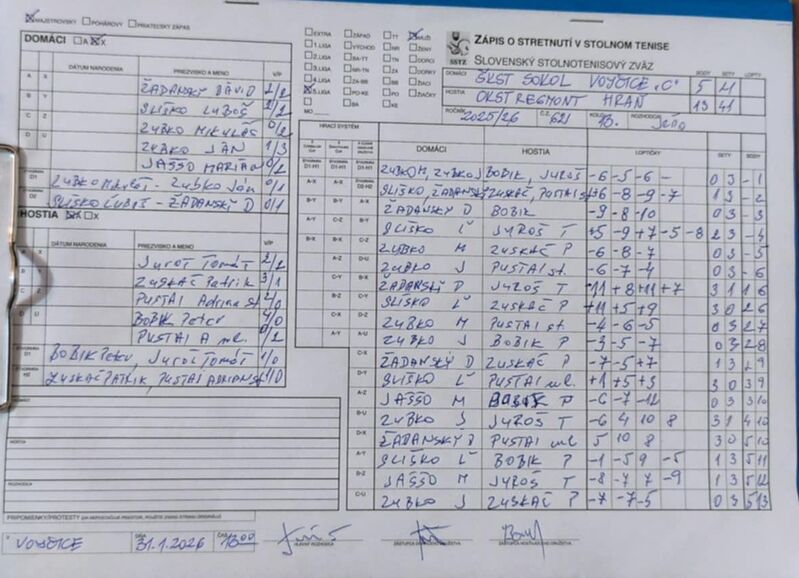 MAJSTROVSKÝ POHÁROVÝ PRIATEĽSKÝ ZÁPAS
DOMÁCI A X
DÁTUM NARODENIA PRIEZVISKO A MENO V/P
A X ŽADANSKÝ DÁVID 2/2
B Y SLIŠKO ĽUBOŠ 2/2
C Z ZUBKO MIKULÁŠ 0/2
D U ZUBKO JÁN 1/3
JAŠŠO MARIÁN 0/2
D1 ZUBKO Mikuláš - ZUBKO Ján 0/1
D2 SLIŠKO ĽUBOŠ - ŽADANSKÝ D 0/1
HOSTIA A X
DÁTUM NARODENIA PRIEZVISKO A MENO V/P
Juroš Tomáš 2/2
ZUSKAČ Patrik 3/1
PUSTAI Adrian st 2/0
BOBIK Peter 4/0
PUSTAI A ml. 0/2
D1 BOBIK Peter, Juroš Tomáš 1/0
ZUSKAČ PATRIK, PUSTAI ADRIAN st 1/0
DOMÁCI
HOSTIA
ROZHODCA
PRIPOMIENKY/PROTESTY
V VOJČICE DŇA 31.1.2026 ČAS 18:00
HLAVNÝ ROZHODCA ZÁSTUPCA DOMÁCEHO DRUŽSTVA ZÁSTUPCA HOSŤUJÚCEHO DRUŽSTVA
EXTRA ZÁPAD TT MUŽI
1. LIGA VÝCHOD NR ŽENY
2. LIGA BA-TT TN DORCI
3. LIGA NR-TN ZA DORKY
4. LIGA ZA-BB BB ŽIACI
5. LIGA PO-KE PO ŽIAČKY
MO BA KE
SSTZ
ZÁPIS O STRETNUTÍ V STOLNOM TENISE
SLOVENSKÝ STOLNOTENISOVÝ ZVÄZ
BODY SETY LOPTY
DOMÁCI ŠKST SOKOL VOJČICE "C" 5 M
HOSTIA OKST REGMONT HRAŇ 13 41
ROČNÍK 2025/26 Č.Z. 621 ROZHODCA
HRACÍ SYSTÉM
DOMÁCI HOSTIA LOPTIČKY SETY BODY
ZUBKO M, ZUBKO J BOBIK, JUROŠ -6 -5 -6 - 0 3 - 1
SLIŠKO, ŽADANSKÝ ZUSKAČ, PUSTAI st +6 -8 -9 -7 1 3 - 2
ŽADANSKÝ D BOBIK -9 -8 -10 0 3 - 3
SLIŠKO Ľ JUROŠ T +5 -9 +7 -5 -8 2 3 - 4
ZUBKO M ZUSKAČ P -6 -8 -7 0 3 - 5
ZUBKO J PUSTAI st. -6 -7 -4 0 3 - 6
ŽADANSKÝ D JUROŠ T -11 +8 +11 +7 3 1 1 6
SLIŠKO Ľ ZUSKAČ P +11 +5 +9 3 0 2 6
ZUBKO M PUSTAI st. -4 -6 -5 0 3 2 7
ZUBKO J BOBIK P -3 -5 -7 0 3 2 8
ŽADANSKÝ D ZUSKAČ P -7 -5 +7 1 3 2 9
SLIŠKO Ľ PUSTAI ml. +1 +5 +3 3 0 3 9
JAŠŠO M BOBIK P -6 -7 -12 0 3 3 10
ZUBKO J JUROŠ T -6 4 10 8 3 1 4 10
ŽADANSKÝ D PUSTAI ml 5 10 8 3 0 5 10
SLIŠKO Ľ BOBIK P -1 -5 9 -5 1 3 5 11
JAŠŠO M JUROŠ T -8 -7 7 -9 1 3 5 12
ZUBKO J ZUSKAČ P -7 -7 -5 0 3 5 13